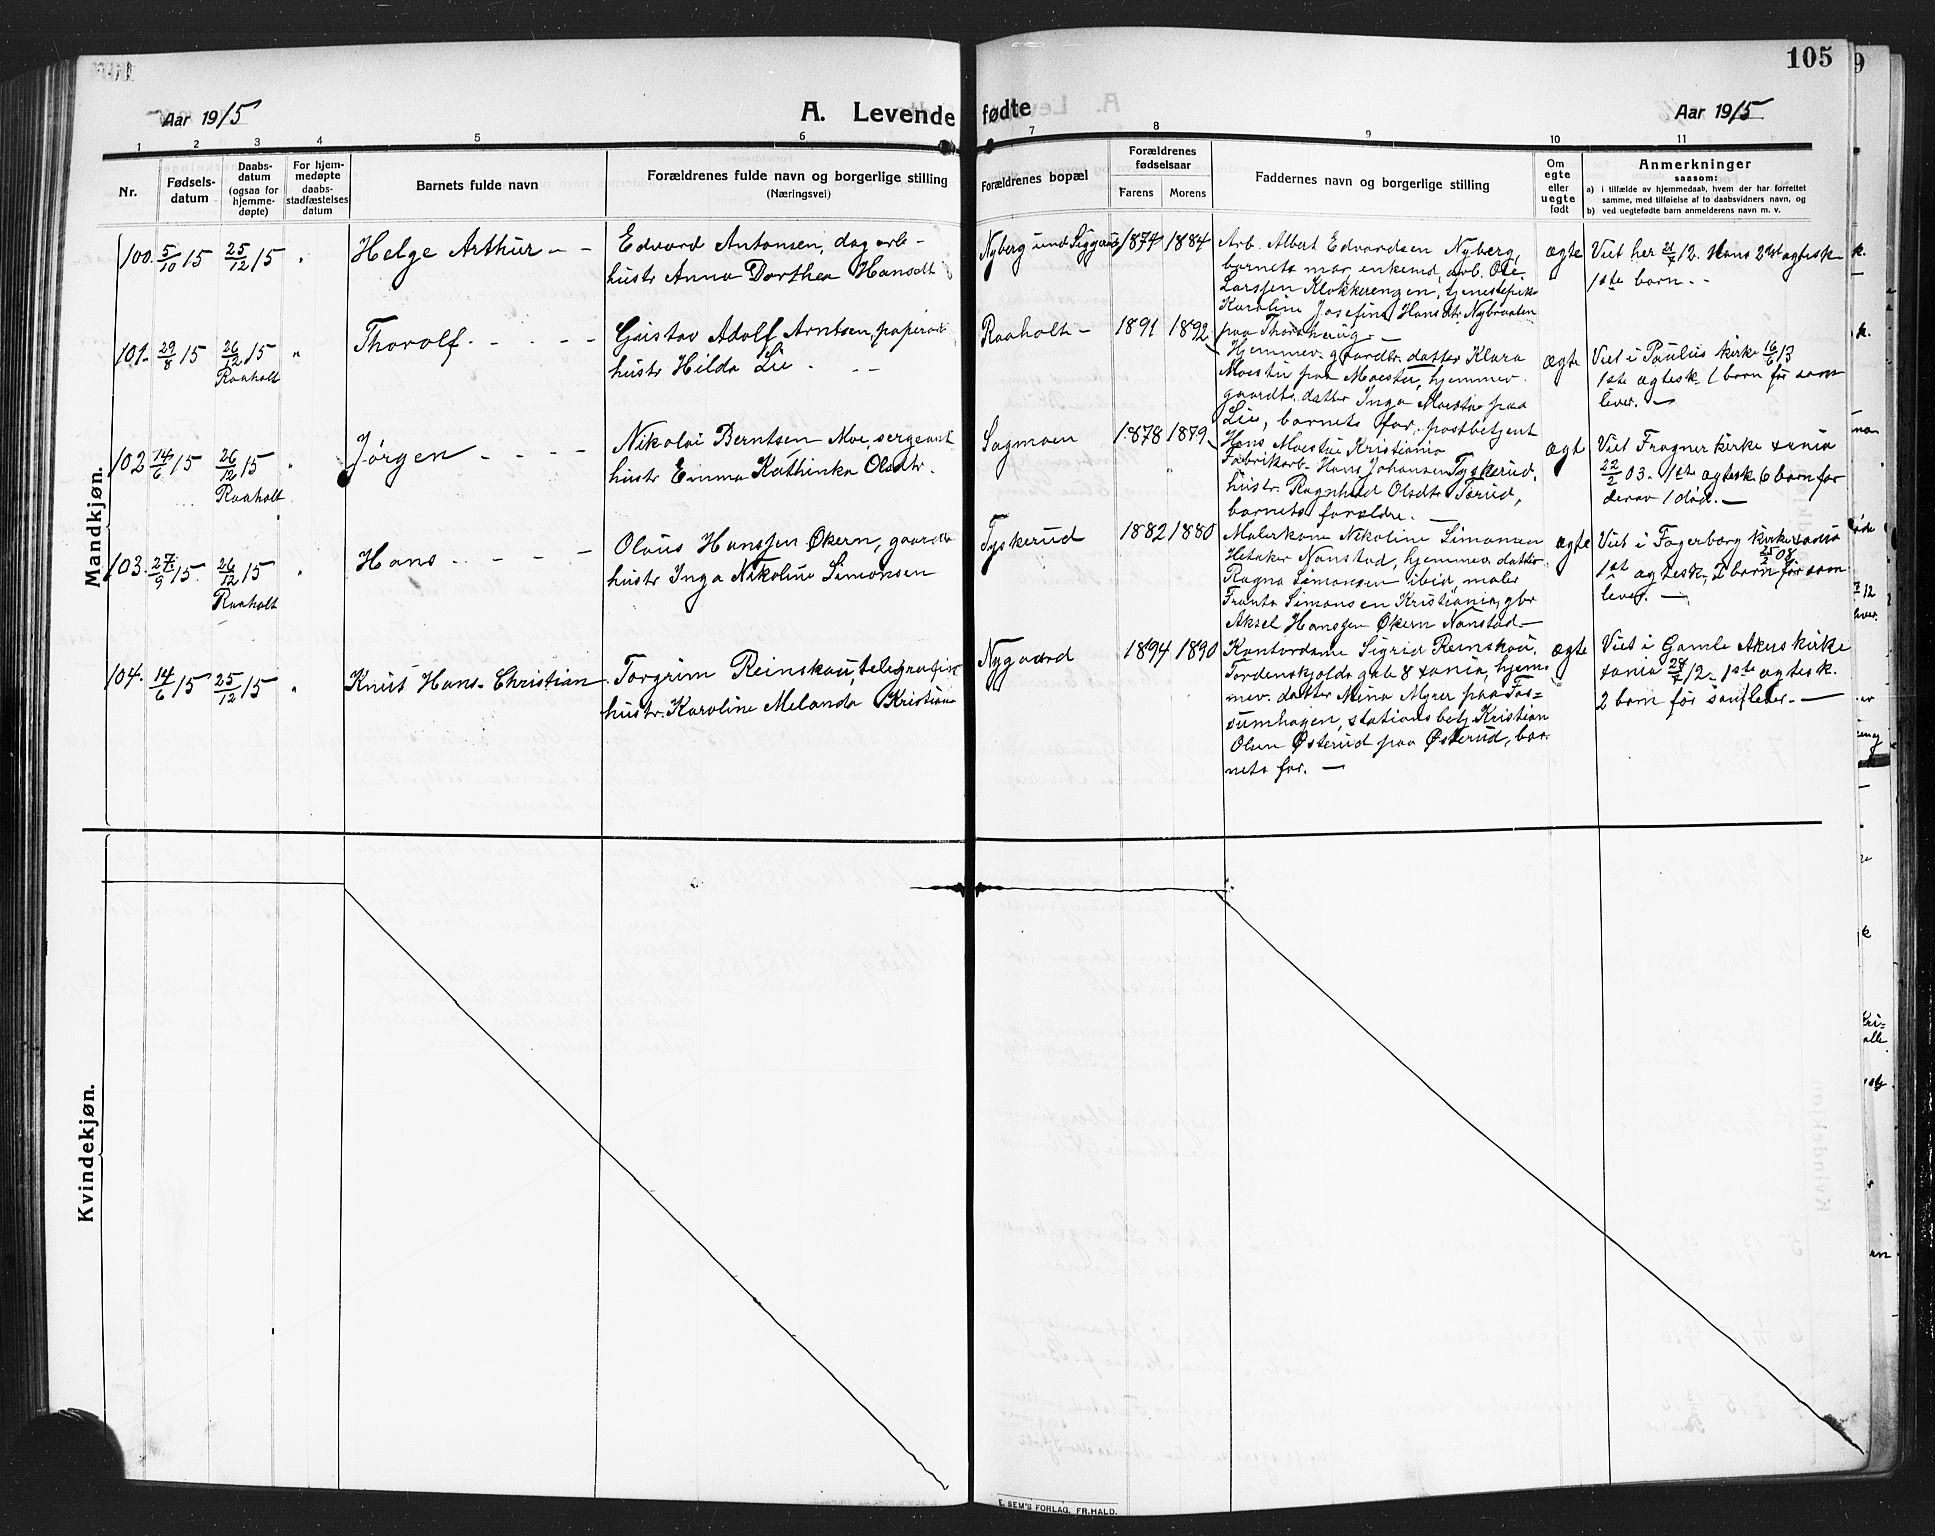 105
Aar 1915
A. Levende fødte
Aar 1915
1 2 3 4 5 6 7 8 9 10 11
Nr.
Fødsels-
datum
Daabs-
datum
(ogsaa for
hjemme-
døpte)
For hjem-
medøpte
daabs-
stadfæstelses
datum
Barnets fulde navn
Forældrenes fulde navn og borgerlige stilling
(Næringsvei)
Forældrenes bopæl
Forældrenes
fødselsaar
Farens Morens
Faddernes navn og borgerlige stilling
Om
egte
eller
uegte
født
Anmerkninger
saasom:
a) i tilfælde av hjemmedaab, hvem der har forrettet
samme, med tilføielse af to daabsvidners navn, og
b) ved uegtefødte barn anmelderens navn m. v.
Mandkjøn.
100. 5/10 15 25/12 15 " Helge Arthur - -
Edvard Antonsen, dagarb-
hustr Anna Dorthea Hansdt
Nyberg und Siggerud 1874 1884
Arb. Albert Edvardsen Nyberg,
barnets mor, enkemd, arb. Ole
Larssen Klokkerengen, tjenestepike
Karoline Josefine Hansdtr Nybraaten
paa Thorshaug -
ægte
Viet her 21/7 12. Hans 2det ægtesk
1ste barn. -
101. 29/8 15 26/12 15 " Thorolf - - - -
Raaholt
Gustav Adolf Arntsen, papirarb
hustr Hilda Lie - - -
Raaholt - 1891 1892
Hjemmev. gaardbr. datter Klara
Moestu paa Moestu, hjemmev.
gaardbr. datter Inga Moestue paa
Lie, barnets far, postbetjent
Hans Moestue Kristiania
ægte
Viet i Paulus kirke 16/6 13
1ste ægtesk. 1 barn før som
lever. -
102 14/6 15 26/12 15 " Jørgen - - - -
Raaholt
Nikolai Berntsen Moe, sergeant
hustr Emma Kathinka Olsdtr.
Sagmoen 1878 1879
Fabrikarb. Hans Johansen Tyskerud,
hustr. Ragnhild Olsdtr Tørud,
barnets forældre. -
ægt
Viet Fragner kirke Xania
22/2 03. 1ste ægtesk. 6 barn før
derav 1 død. -
103. 27/9 15. 26/12 15 " Hans - - -
Raaholt
Olaus Hanssen Økern, gaardbr
hustr Inga Nikoline Simonsen
Tyskerud 1882 1880
Malerkone Nikoline Simonsen
Hetaker Nanstad, hjemmev. datter
Ragna Simonsen ibid, maler
Frants Simonsen Kristiania, gbr
Aksel Hanssen Økern Nanstad. -
ægte
Viet i Fagerborg kirke Xania
25/2 08
1st ægtesk, I barn før som
lever. -
104. 14/6 15 25/12 15 " Knut Hans-Christian
Torgrim Reinskou, telegrafist
hustr. Karoline Melanda Kristians
Nygaard 1894 1890
Kontordame Sigrid Reinskou,
Tordenskjolds gate 8 Xania, hjem-
mev. datter Mina Myrer paa Fos-
sumhagen, stationsbetj Kristian
Olsen Østerud paa Østerud, bar-
nets far. -
ægte
Viet i Gamle Akers kirke
Xania 24/7 12. 1ste ægtesk.
2 barn før som lever. -
Kvindekjøn.
E. SEM'S FORLAG, FR.HALD.